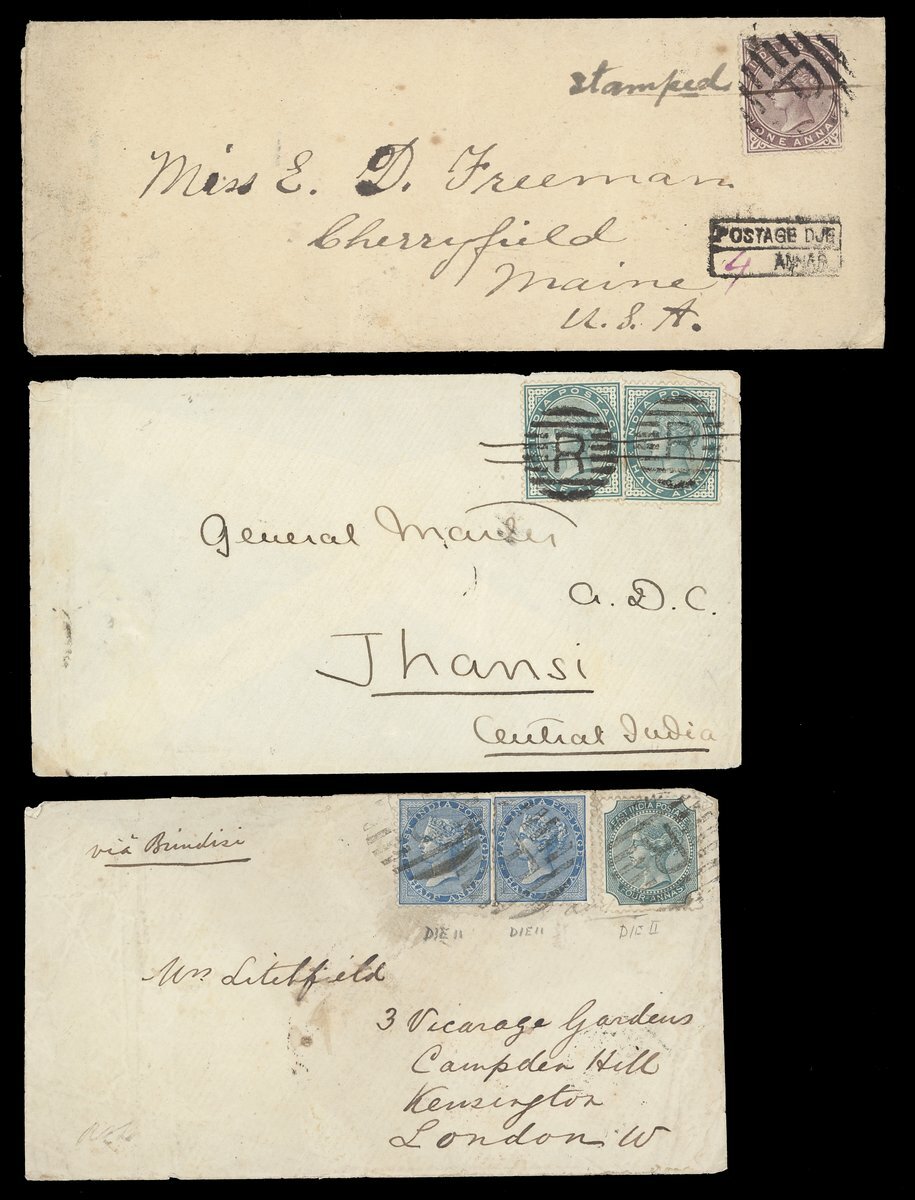 stamped
ONE ANNA
Miss E. D. Freeman
Cherryfield
Maine
U.S.A.
POSTAGE DUE
4 ANNAS
INDIA POSTAGE INDIA POSTAGE
R R
HALF ANNA
General
A.D.C.
Jhansi
Central India
via Brindisi
EAST INDIA POSTAGE EAST INDIA POSTAGE EAST INDIA POSTAGE
HALF ANNA HALF ANNA FOUR ANNAS
DIE II DIE II DIE II
Mrs Litchfield
3 Vicarage Gardens
Campden Hill
Kensington
London W